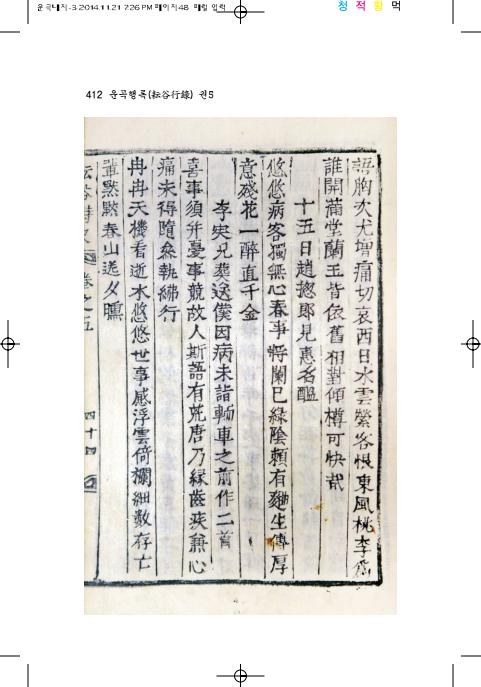 운곡내지-3 2014.11.21 7:26 PM 페이지48 매일 입력
청 적 황 먹
412 운곡행록(耘谷行錄) 권5
語胸次尤增痛切哀西日水雲縈客恨東風桃李爲
誰開滿堂蘭玉皆依舊相對傾樽可快哉
十五日趙摠郎見惠名醞
悠悠病客獨無心春事將闌已綠陰賴有鯫生傳厚
意殘花一醉直千金
李宋兄葬送僕因病未詣輀車之前作二首
喜事須幷憂事競故人斯語有荒唐乃緣齒疾兼心
痛未得隨叅執紼行
冉冉天機看逝水悠悠世事感浮雲倚欄細數存亡
輩默默春山送夕曛
耘谷詩史 卷之五 四十四